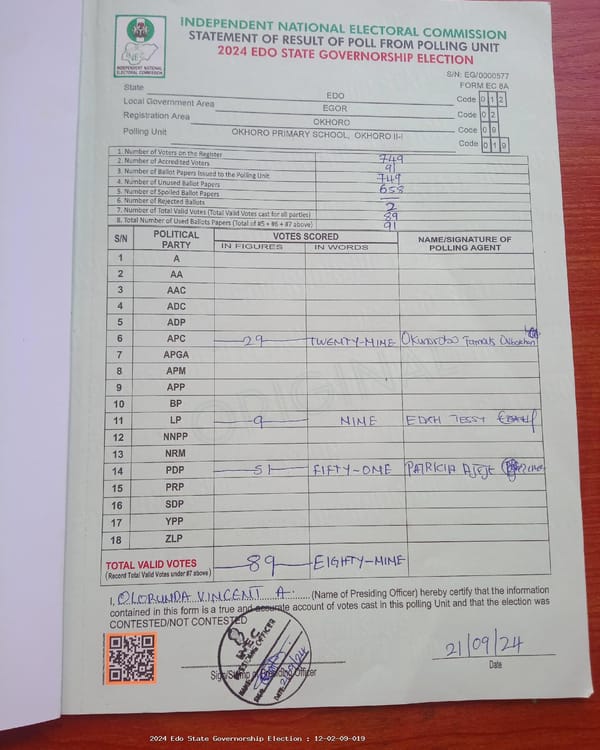 INDEPENDENT NATIONAL ELECTORAL COMMISSION
STATEMENT OF RESULT OF POLL FROM POLLING UNIT
2024 EDO STATE GOVERNORSHIP ELECTION
INDEPENDENT NATIONAL ELECTORAL COMMISSION
S/N: EG/0000577
FORM EC 8A
State EDO Code 0 1 2
Local Government Area EGOR Code 0 2
Registration Area OKHORO Code 0 9
Polling Unit OKHORO PRIMARY SCHOOL, OKHORO II-I Code 0 1 9
1. Number of Voters on the Register 749
2. Number of Accredited Voters 91
3. Number of Ballot Papers Issued to the Polling Unit 749
4. Number of Unused Ballot Papers 658
5. Number of Spoiled Ballot Papers —
6. Number of Rejected Ballots 2
7. Number of Total Valid Votes (Total Valid Votes cast for all parties) 89
8. Total Number of Used Ballots Papers (Total of #5 + #6 + #7 above) 91
S/N POLITICAL PARTY VOTES SCORED NAME/SIGNATURE OF POLLING AGENT
IN FIGURES IN WORDS
1 A
2 AA
3 AAC
4 ADC
5 ADP
6 APC 29 TWENTY-NINE
7 APGA
8 APM
9 APP
10 BP
11 LP 9 NINE EDKH TESSY
12 NNPP
13 NRM
14 PDP 51 FIFTY-ONE PATRICIA
15 PRP
16 SDP
17 YPP
18 ZLP
TOTAL VALID VOTES 89 EIGHTY-NINE
(Record Total Valid Votes under #7 above)
ORIGINAL
I, OLORUNDA VINCENT A. (Name of Presiding Officer) hereby certify that the information
contained in this form is a true and accurate account of votes cast in this polling Unit and that the election was
CONTESTED/NOT CONTESTED
INEC
PRESIDING OFFICER
DATE 21/09/24
Sign/Stamp of Presiding Officer
21/09/24
Date
2024 Edo State Governorship Election : 12-02-09-019